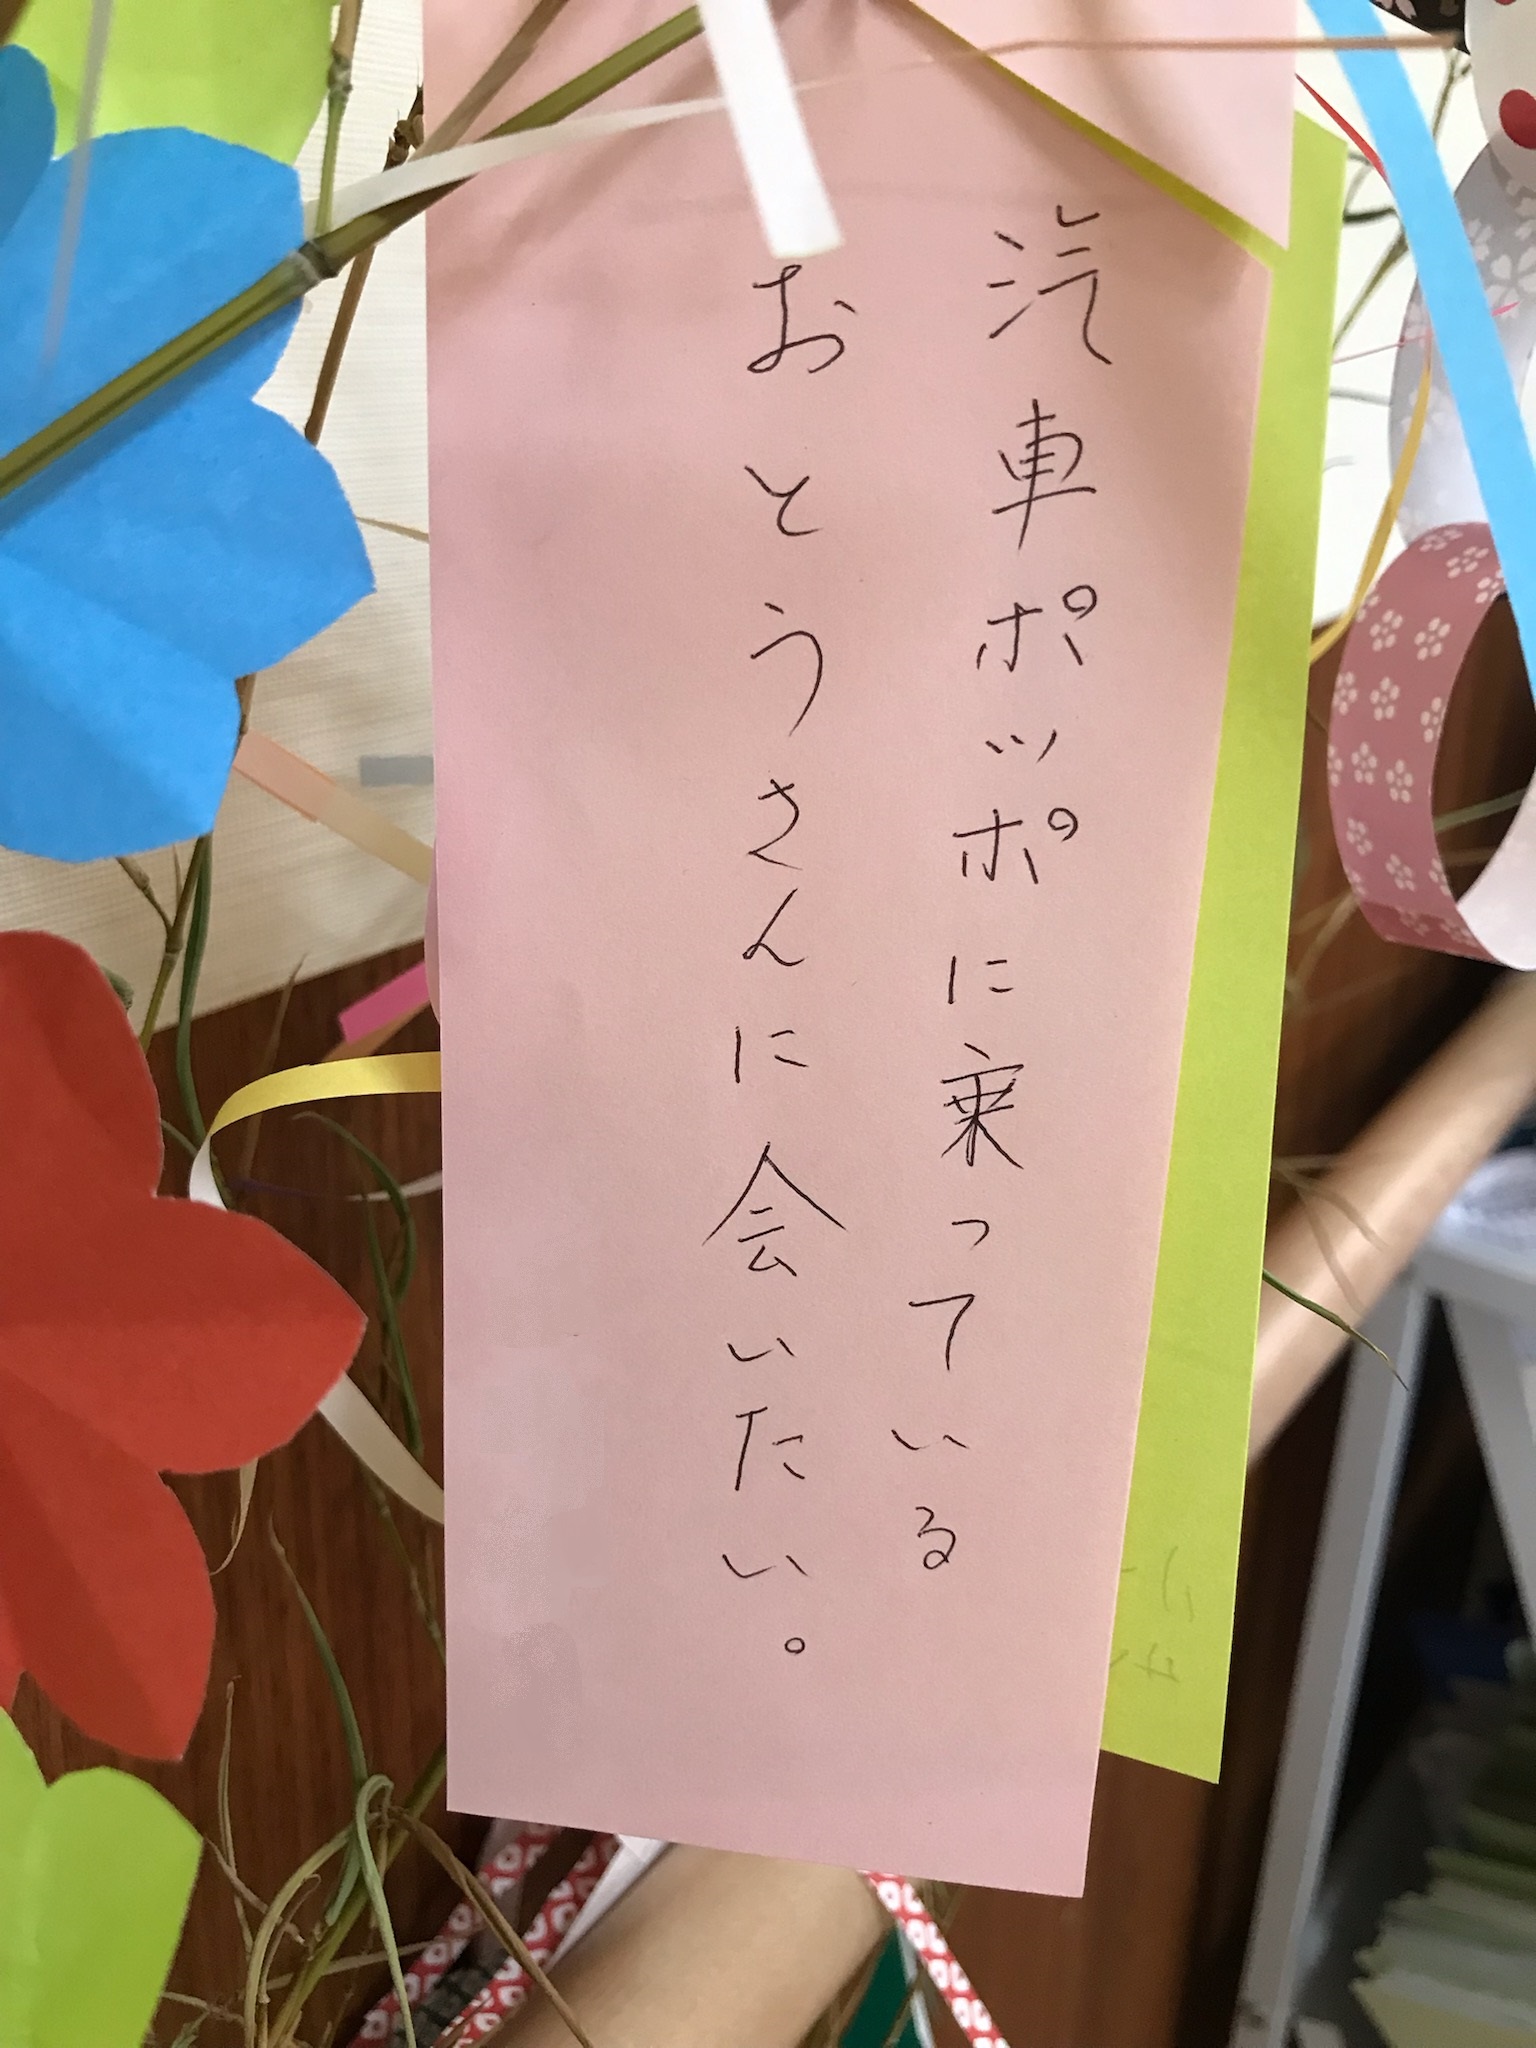 汽車ポッポに乗っている
おとうさんに会いたい。